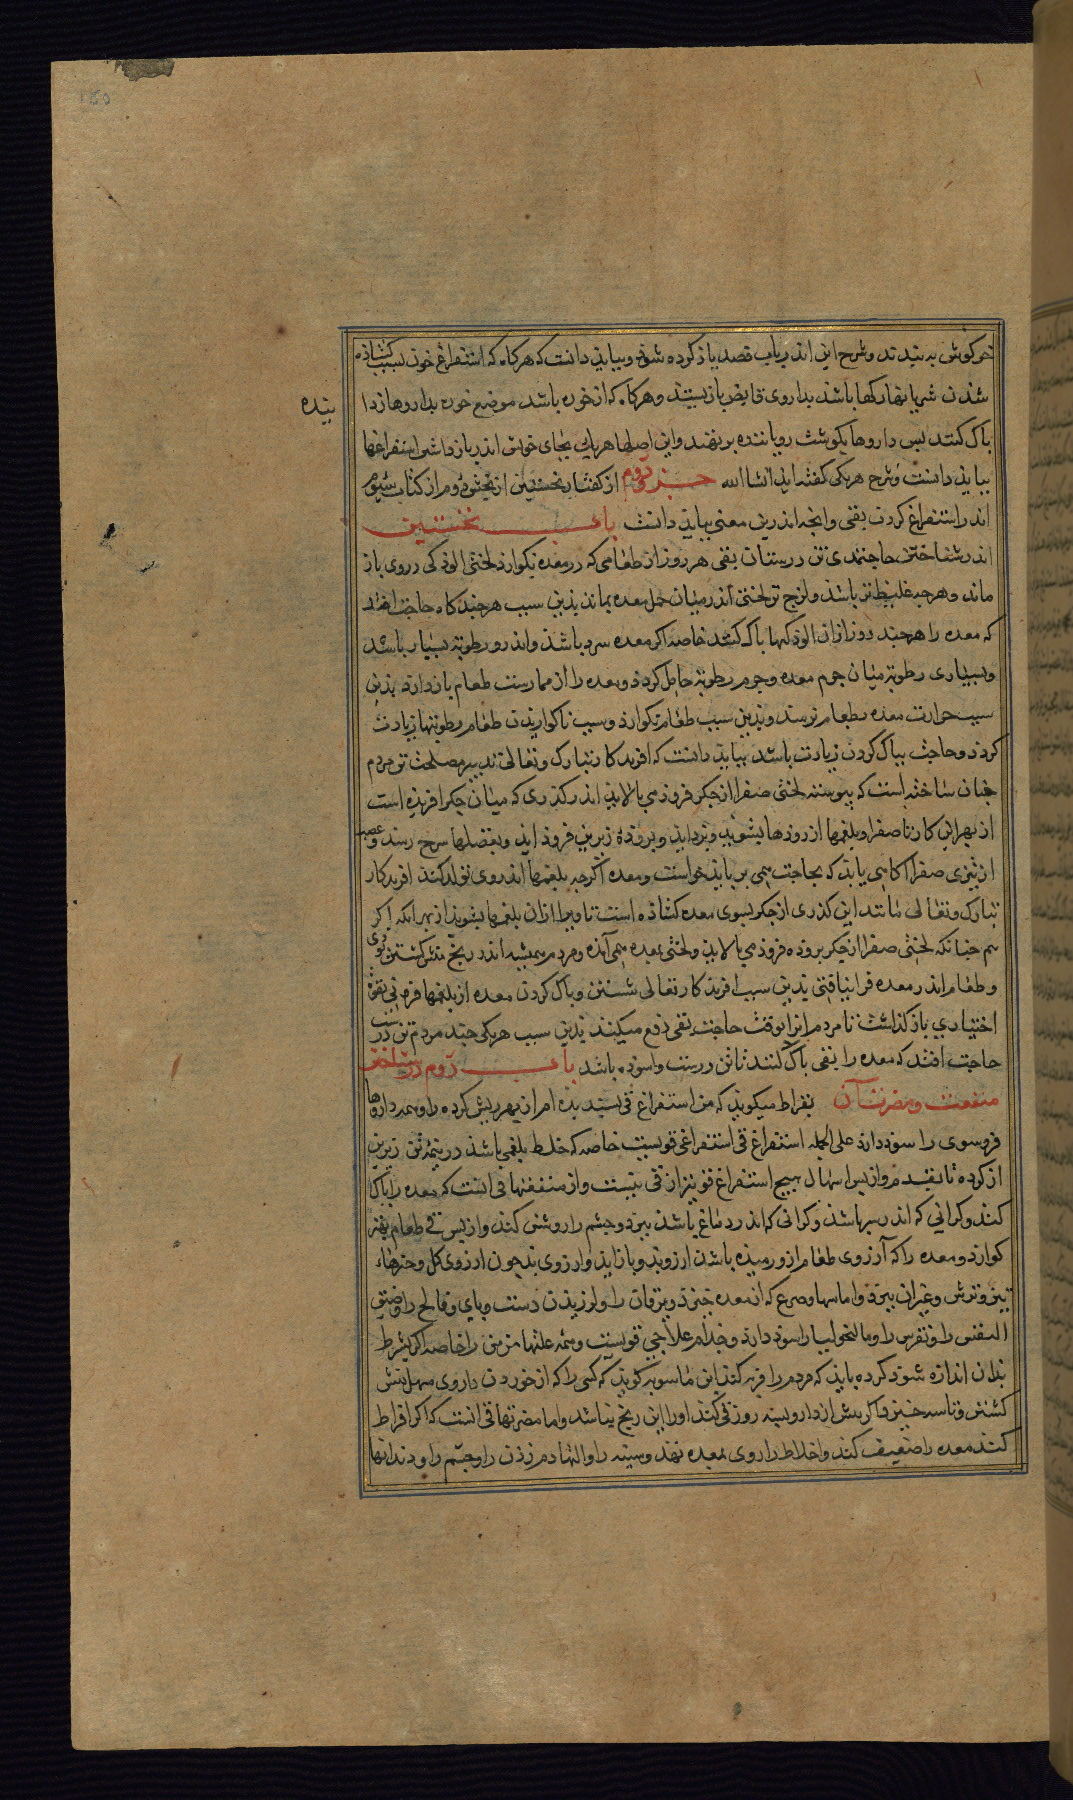 خرکوش بر بندند و شرح این اندر باب فصد یاد کرده شود و بباید دانست که هرکاه که استفراغ خون بسبب کشاده
شدن شریانها و رکها باشد بداروی قابض باز بستند و هرکاه که از خوره باشد موضع خوره بداروها زدا
ینده
پاک کنند پس داروها کوشت رویاننده بر نهند و این اصلها هریکی بجای خویش اندر باز داشتن استفراغها
بباید دانست و شرح هریکی گفته اید انشا الله جزو دوم از کفتار نخستین از بخش دوم از کتاب سیوم
اندر استفراغ کردن بقی و انچه اندرین معنی بباید دانست باب نخستین
اندر شناختن حاجتمندی تن درستان بقی هر روز از طعامی که در معده بکوارد لختی الودکی در وی باز
ماند و هرچه غلیظ تر باشد و لزج تر لختی اندر میان خمل معده بماند بدین سبب هرچند کاه حاجت افتد
که معده را هرچند روز ازان الودکیها پاک کنند خاصه اکر معده سرد باشد و اندرو رطوبة بسیار باشد
و بسیاری رطوبة میان جرم معده و جرم رطوبة حایل کردد و معده را از ممارست طعام باز دارد بدین
سبب حرارت معده بطعام نرسد و بدین سبب طعام نکوارد و سبب ناکواریدن طعام رطوبتها زیادت
کردد و حاجت بپاک کردن زیادت باشد بباید دانست که افریدکار تبارک و تعالی تدبیر مصلحت تن مردم
چنان ساخته است که پیوسته لختی صفرا از جکر فرود می پالاید اندر کذری که میان جکر افریده است
از بهر این کار تا صفرا و بلغمها از رودها بشوید و بزداید و بروده زیرین فرود اید و بعضلها سرح رسد و عصبها
از تیزی صفرا اکاهی یابد که بحاجت همی بر باید خواست و معده اکرچه بلغمها اندر وی تولد کند افریدکار
تبارک و تعالی مانند این کذری از جکر بسوی معده کشاده است تا ویرا ازان بلغمها بشوید از بهر انکه اکر
هم چنانکه لختی صفرا از جکر بروده فرود می پالاید و لختی بمعده همی آمده و مردم همیشه اندر رنج منش کشتن بودی
و طعام اندر معده قرار نیافتی بدین سبب افریدکار تعالی شستن و پاک کردن معده از بلغمها
اختیاری باز کذاشت تا مردم انرا بوقت حاجت بقی دفع میکنند بدین سبب هریکی چند مردم تن درست
حاجت افتد که معده را بقی پاک کنند تا تن درست و اسوده باشد باب دوم در شناختن
منفعت و مضرت آن بقراط میکوید که من استفراغ قی پسندیده ام از بهر ریش کرده را و همه داروها
فروسوی را سود دارد علی الجمله استفراغ قی استفراغی قویست خاصه که خلط بلغمی باشد در نیمه تن زیرین
از کرده تا بقدم و از پس اسهال هیچ استفراغ قوی تر از قی نیست و از منفعتها قی انست که معده را پاک
کند و کرانی که اندر سر باشد و کرانی که اندر دماغ باشد ببرد و چشم را روشن کند و از پس قی طعام بهتر
کوارد و معده را که آرزوی طعام ازو رمیده باشد ارزو پدید باز اید و ارزوی بد چون ارزوی کل و چیزهاء
تیز و ترش و غیر ان ببرد و اماسها و صرع که از معده خیزد و یرقان را و لرزیدن دست و پای و فالج را و ضیق
النفس را و نقرس را و مالنخولیا را سود دارد و جذام علاجی قویست و همه علتها مزمن را خاصه اکر بشرط
بدان اندازه شود کرده باید که مردم را فربه کند ابن ماسویه کوید که کسی را که از خوردن داروی مسهل منش
کشتن و تاسه خیزد اکر پیش از دارو بسه روز قی کند او را این رنج نباشد و اما مضرتها قی انست که اکر افراط
کنند معده را ضعیف کند و اخلاط را روی بمعده نهد و سینه را و التها دم زدن را و چشم را و دندانها